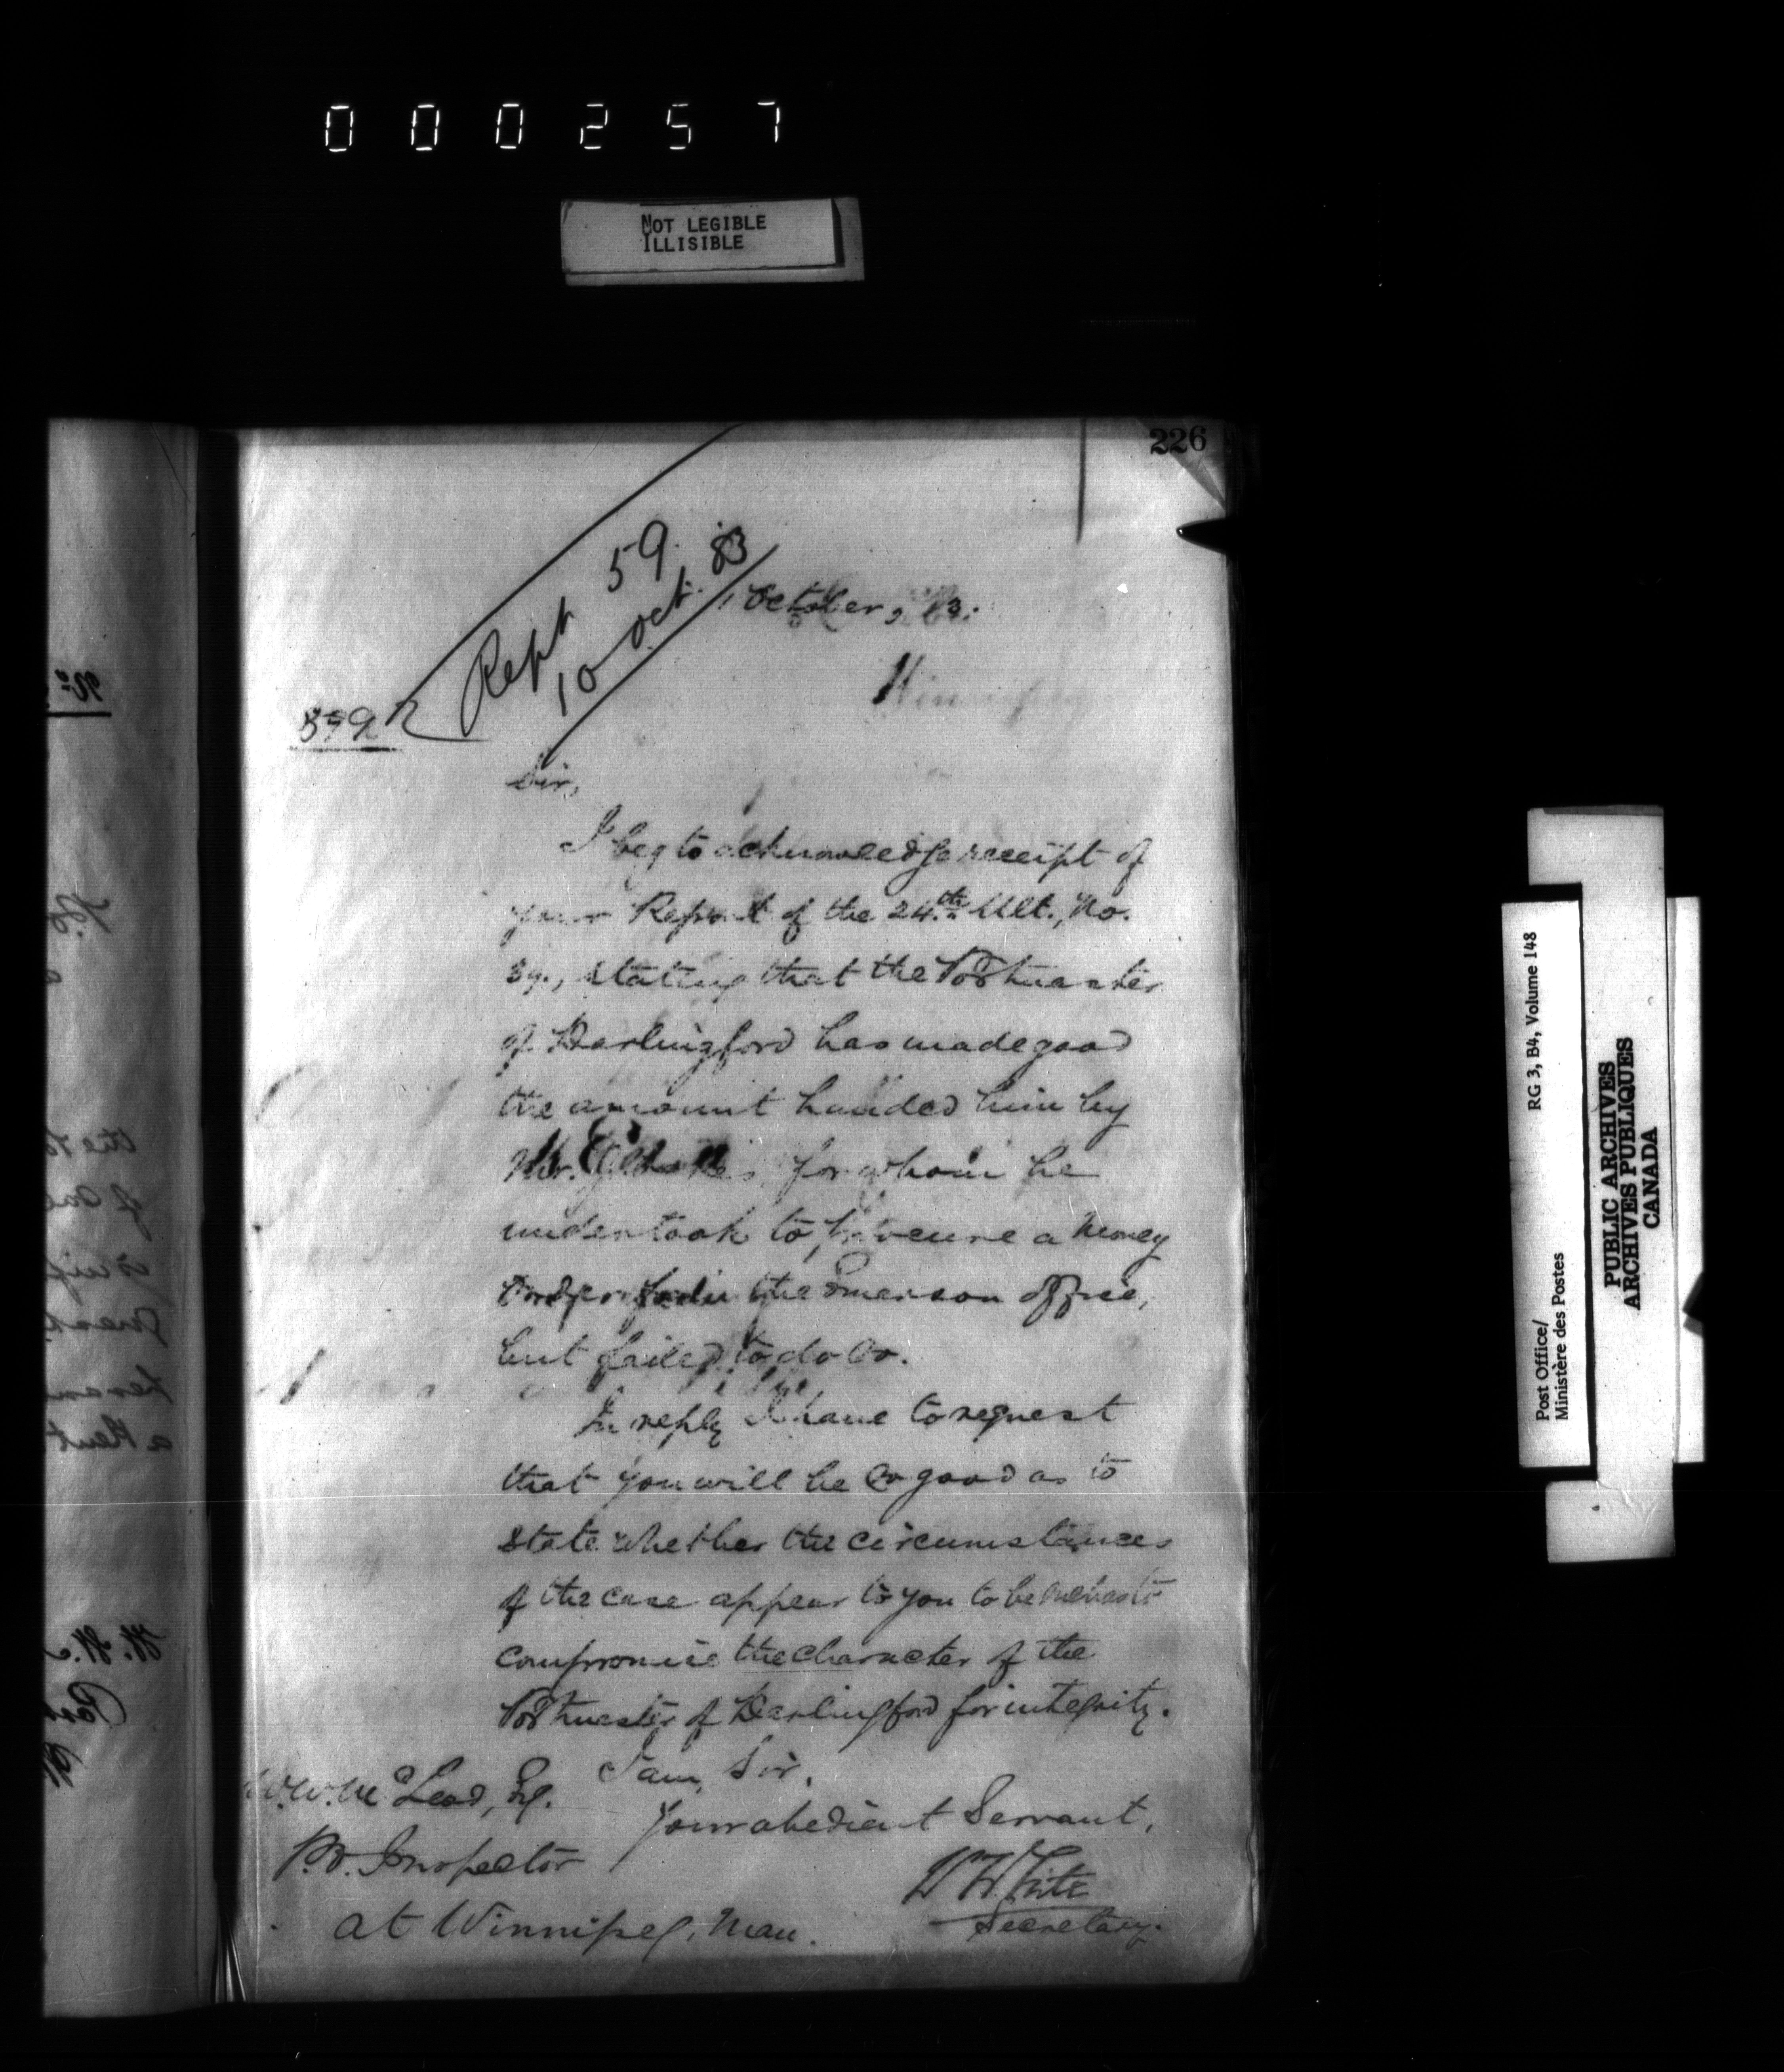 000257
NOT LEGIBLE
ILLISIBLE
226
Rept 59.
10 Oct. 83
1 October, 83.
Winnipeg
Sir,
I beg to acknowledge receipt of
your Report of the 24th Ult., No.
stating that the Postmaster
of Darlingford has made good
the amount handed him by
Mr. for whom he
undertook to procure a Money
Order from the Emerson office,
but failed to do so.
In reply I have to request
that you will be so good as to
state whether the circumstances
of the case appear to you to be such as to
compromise the character of the
Postmaster of Darlingford for integrity.
I am, Sir,
Your obedient Servant,
W. W. McLeod, Esq.
P.O. Inspector
at Winnipeg, Man.
W White
Secretary.
RG 3, B4, Volume 148
Post Office/
Ministère des Postes
PUBLIC ARCHIVES
ARCHIVES PUBLIQUES
CANADA